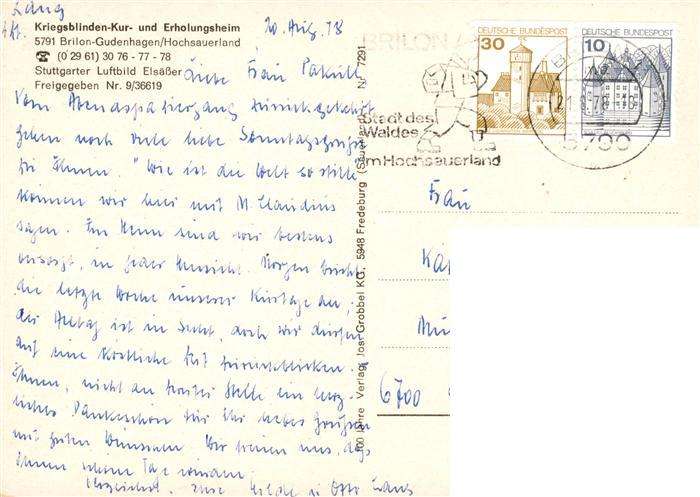 Kriegsblinden-Kur- und Erholungsheim
5791 Brilon-Gudenhagen/Hochsauerland
☎ (0 29 61) 30 76 - 77 - 78
Stuttgarter Luftbild Elsäßer
Freigegeben Nr. 9/36619
Lang
20. Aug. 78
Liebe Frau
Vom Abendspaziergang zurückgekehrt
gehen noch viele liebe Sonntagsgrüße
zu Ihnen. "Wie ist die Welt so stille"
können wir hier mit M. Claudius
sagen. Im Heim sind wir bestens
versorgt, in jeder Hinsicht. Morgen bricht
die letzte Woche unserer Kurtage an,
der Alltag ist in Sicht, doch wir dürfen
auf eine köstliche Zeit zurückblicken.
Ihnen, nicht an letzter Stelle ein herz-
liches Dankeschön für Ihr liebes
mit guten Wünschen. Wir freuen uns, daß
Ihnen
Herzlichst, Ihre Hilde u. Otto Lang
100 Jahre Verlag Jos. Grobbel KG, 5948 Fredeburg (Sauerland) Nr. 7291
BRILON
Stadt des
Waldes
im Hochsauerland
30
DEUTSCHE BUNDESPOST
10
DEUTSCHE BUNDESPOST
21.8.78
5790
Frau
6700